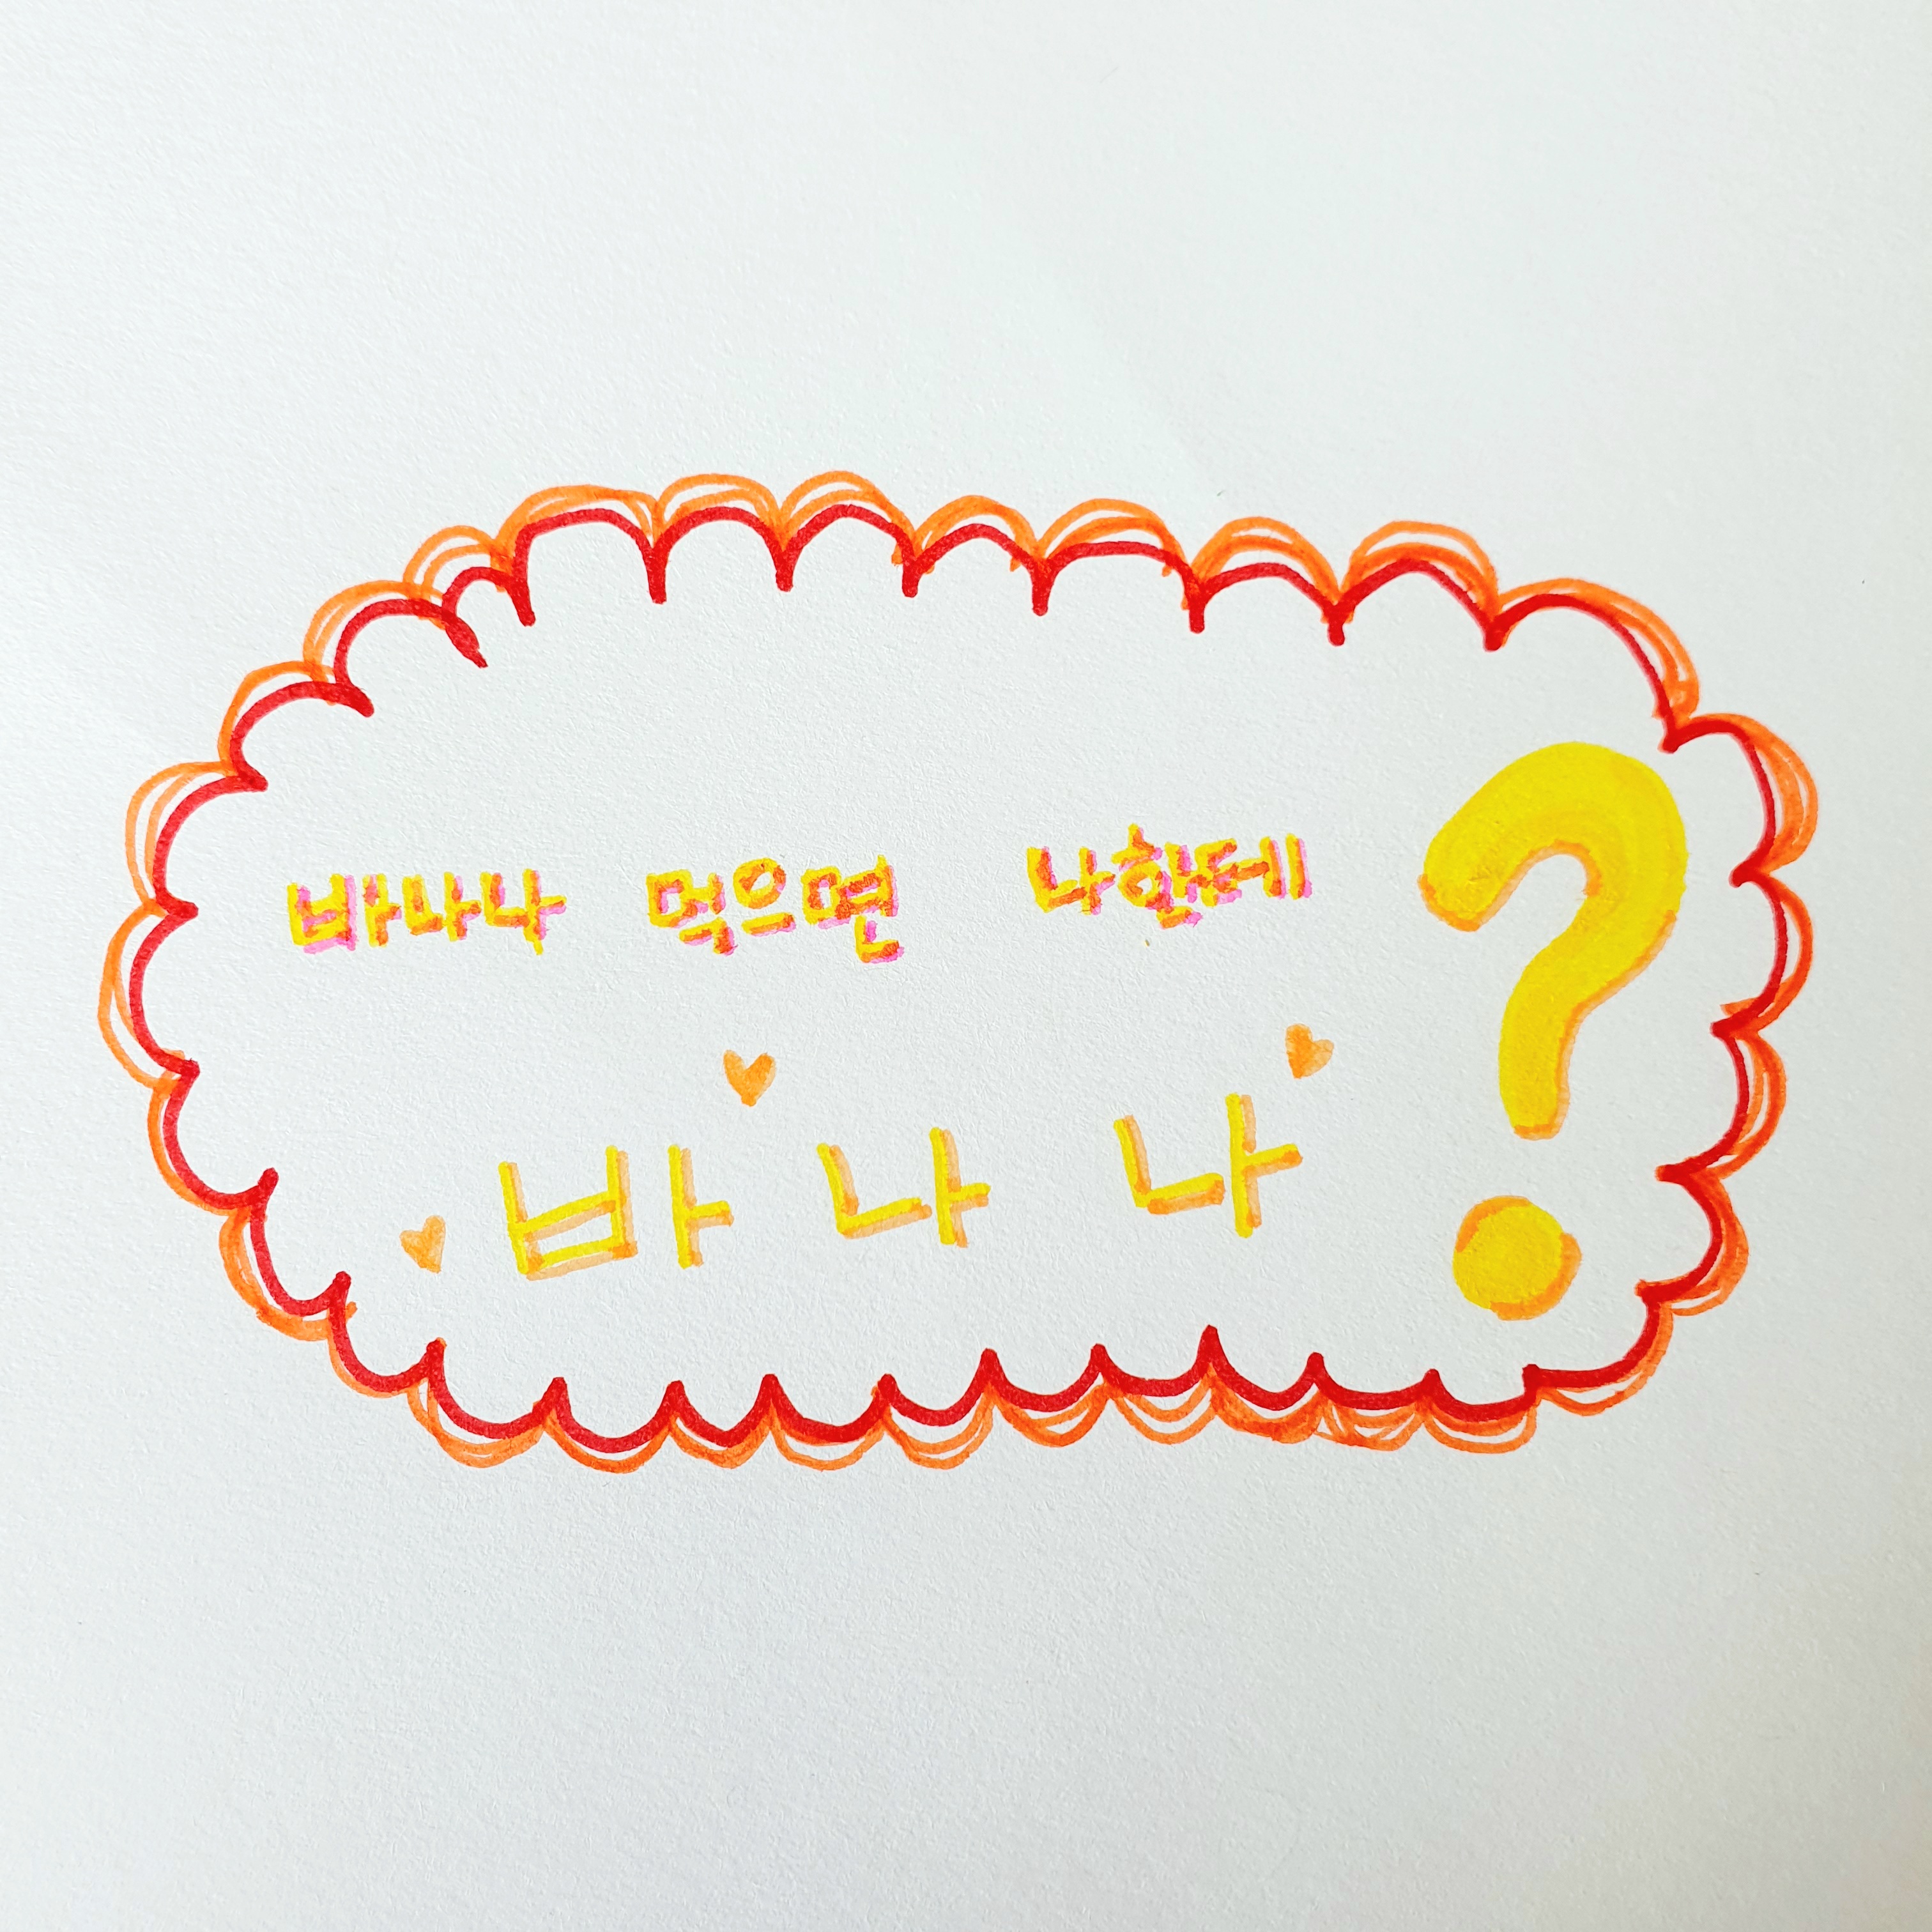 바나나 먹으면 나한테
바나나?